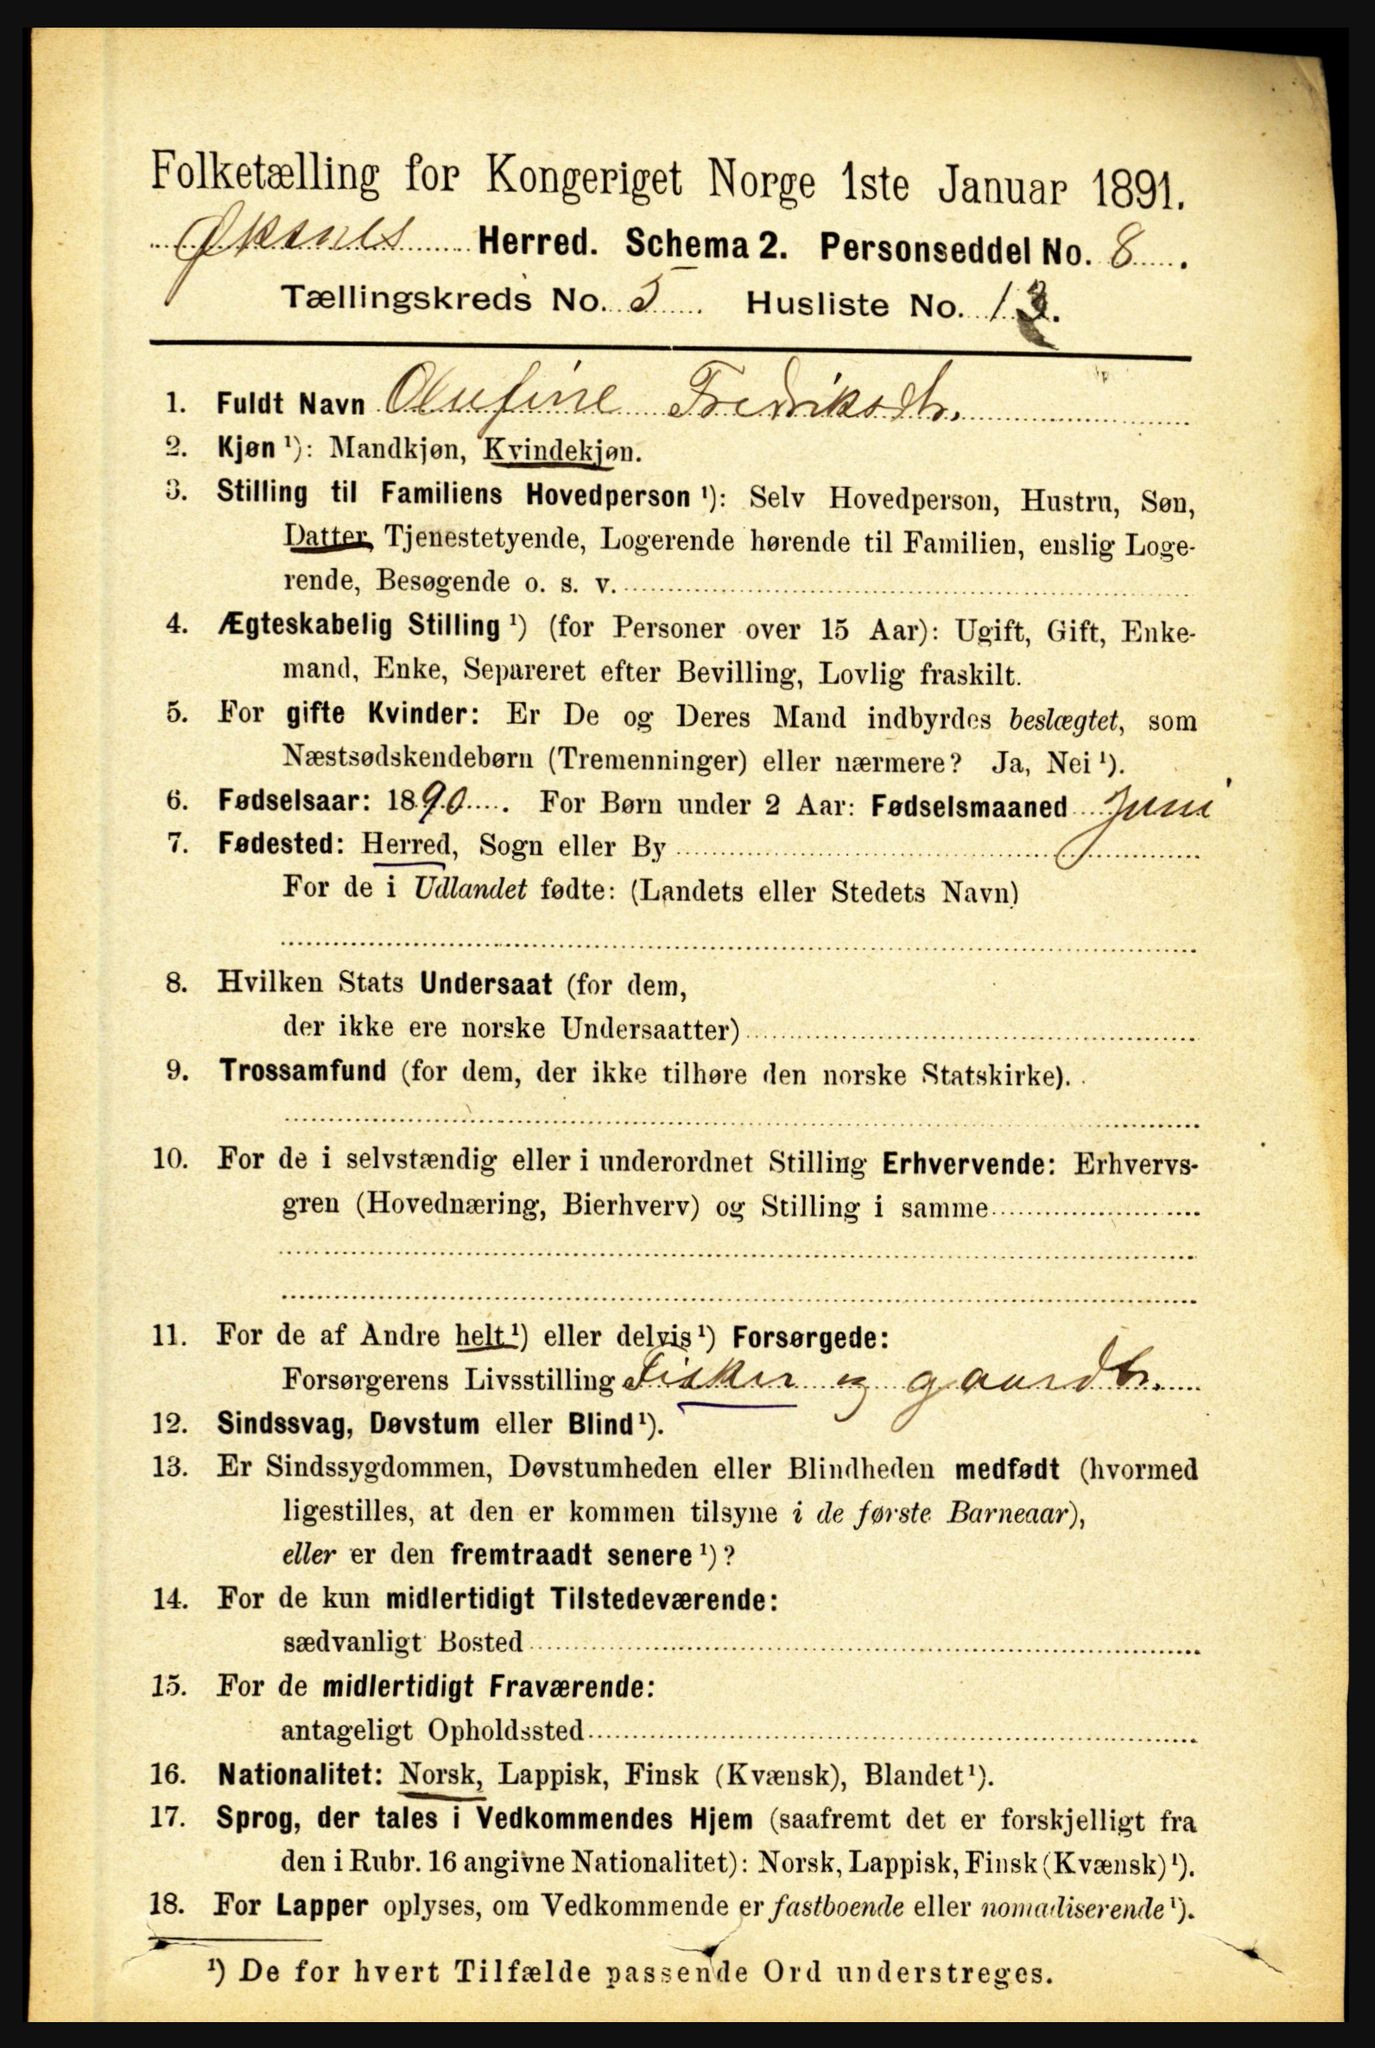 Folketælling for Kongeriget Norge 1ste Januar 1891.
Øksnes Herred. Schema 2. Personseddel No. 8.
Tællingskreds No. 5 Husliste No. 13.
1. Fuldt Navn Olufine Fredriksdtr.
2. Kjøn¹): Mandkjøn, Kvindekjøn.
3. Stilling til Familiens Hovedperson¹): Selv Hovedperson, Hustru, Søn,
Datter, Tjenestetyende, Logerende hørende til Familien, enslig Loge-
rende, Besøgende o. s. v.
4. Ægteskabelig Stilling¹) (for Personer over 15 Aar): Ugift, Gift, Enke-
mand, Enke, Separeret efter Bevilling, Lovlig fraskilt.
5. For gifte Kvinder: Er De og Deres Mand indbyrdes beslægtet, som
Næstsødskendebørn (Tremenninger) eller nærmere? Ja, Nei¹).
6. Fødselsaar: 1890. For Børn under 2 Aar: Fødselsmaaned Juni
7. Fødested: Herred, Sogn eller By
For de i Udlandet fødte: (Landets eller Stedets Navn)
8. Hvilken Stats Undersaat (for dem,
der ikke ere norske Undersaatter)
9. Trossamfund (for dem, der ikke tilhøre den norske Statskirke).
10. For de i selvstændig eller i underordnet Stilling Erhvervende: Erhvervs-
gren (Hovednæring, Bierhverv) og Stilling i samme
11. For de af Andre helt¹) eller delvis¹) Forsørgede:
Forsørgerens Livsstilling Fisker og gaardbr.
12. Sindssvag, Døvstum eller Blind¹).
13. Er Sindssygdommen, Døvstumheden eller Blindheden medfødt (hvormed
ligestilles, at den er kommen tilsyne i de første Barneaar),
eller er den fremtraadt senere¹)?
14. For de kun midlertidigt Tilstedeværende:
sædvanligt Bosted
15. For de midlertidigt Fraværende:
antageligt Opholdssted
16. Nationalitet: Norsk, Lappisk, Finsk (Kvænsk), Blandet¹).
17. Sprog, der tales i Vedkommendes Hjem (saafremt det er forskjelligt fra
den i Rubr. 16 angivne Nationalitet): Norsk, Lappisk, Finsk (Kvænsk)¹).
18. For Lapper oplyses, om Vedkommende er fastboende eller nomadiserende¹).
¹) De for hvert Tilfælde passende Ord understreges.